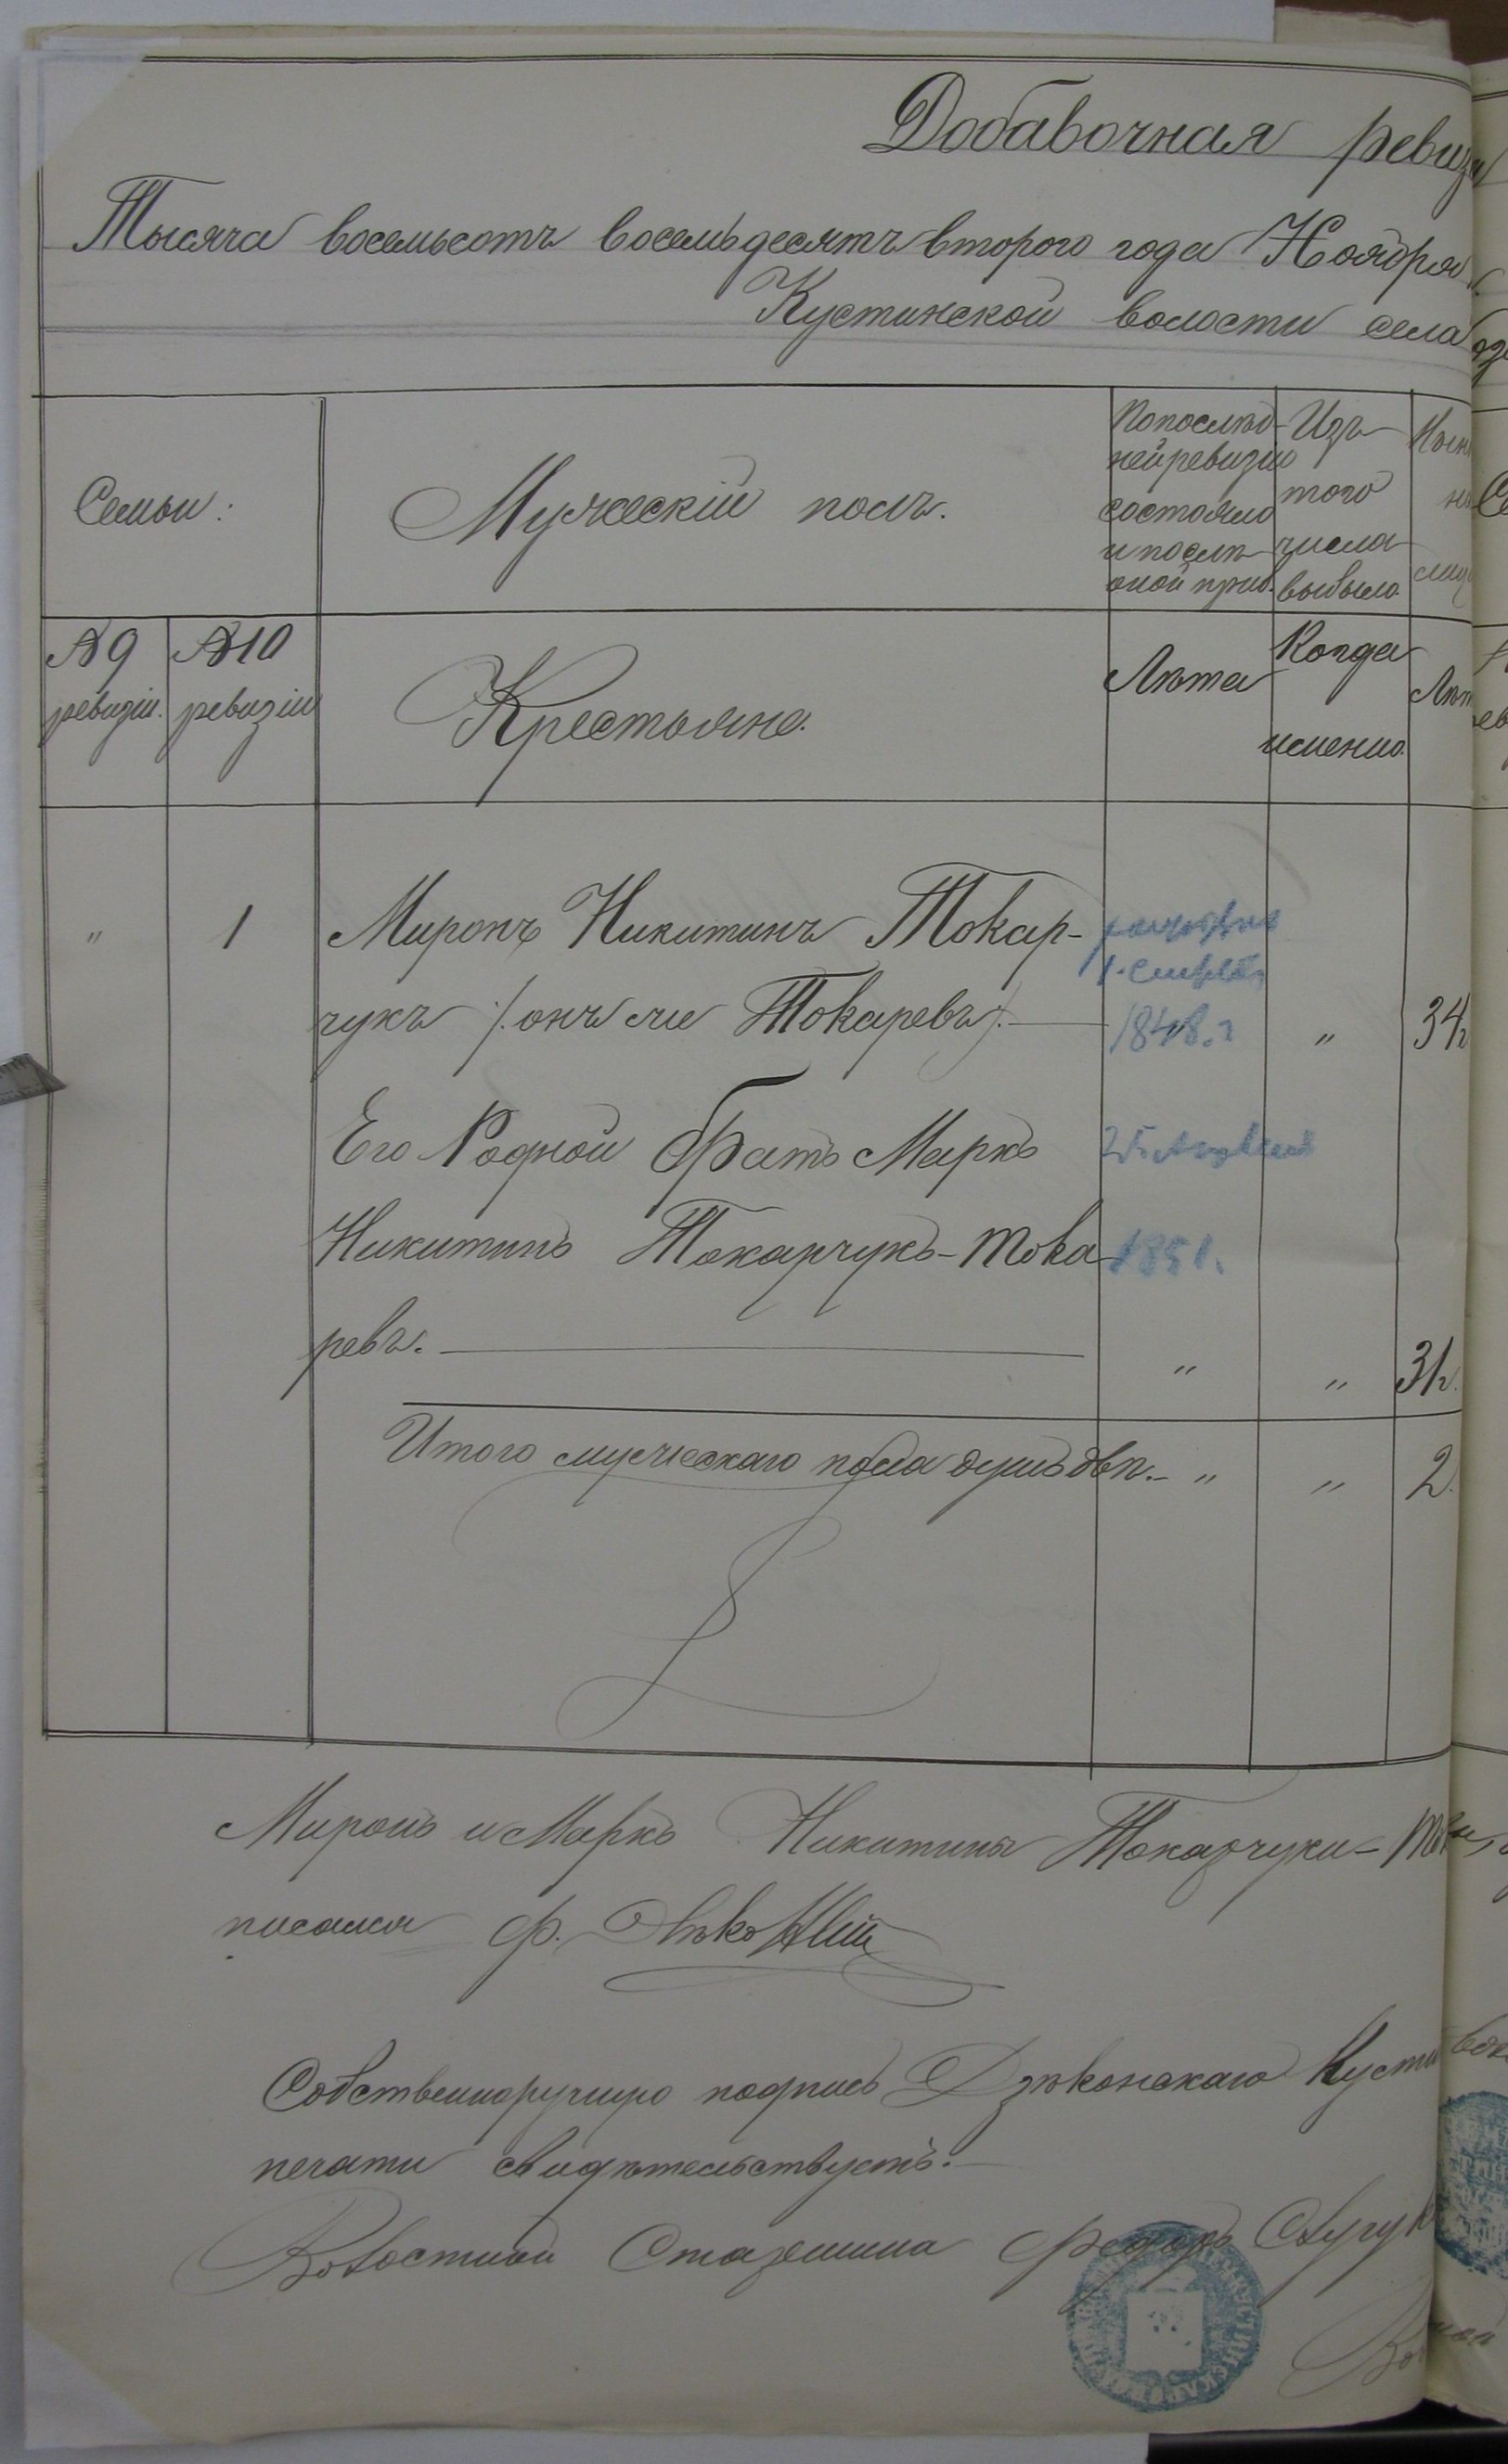 Добавочная ревиз
Тысяча восемьсотъ восемьдесятъ второго года Ноября
Кустинской волости села
Семьи:
Мужескій полъ.
По послѣд-
ней ревизіи
состояло
и послѣ
оной приб.
Изъ
того
числа
выбыло
Нын
№ 9
ревизіи.
№ 10
ревизіи
Крестьяне.
Лѣта
Когда
именно.
Лѣт
" 1 Миронъ Никитинъ Токар-
чукъ /: онъ же Токаревъ :/
1848. г " 34 г
Его Родной братъ Маркъ
Никитинъ Токарчукъ-Тока
1851.
ревъ. " " 31 г.
Итого мужескаго пола душъ двѣ. " " 2.
Миронъ и Маркъ Никитины Токарчуки-
писался Ф.
Собственноручную подпись Дзѣконскаго Кусти
печати свидѣтельствуетъ.
Волостной Старшина Федоръ